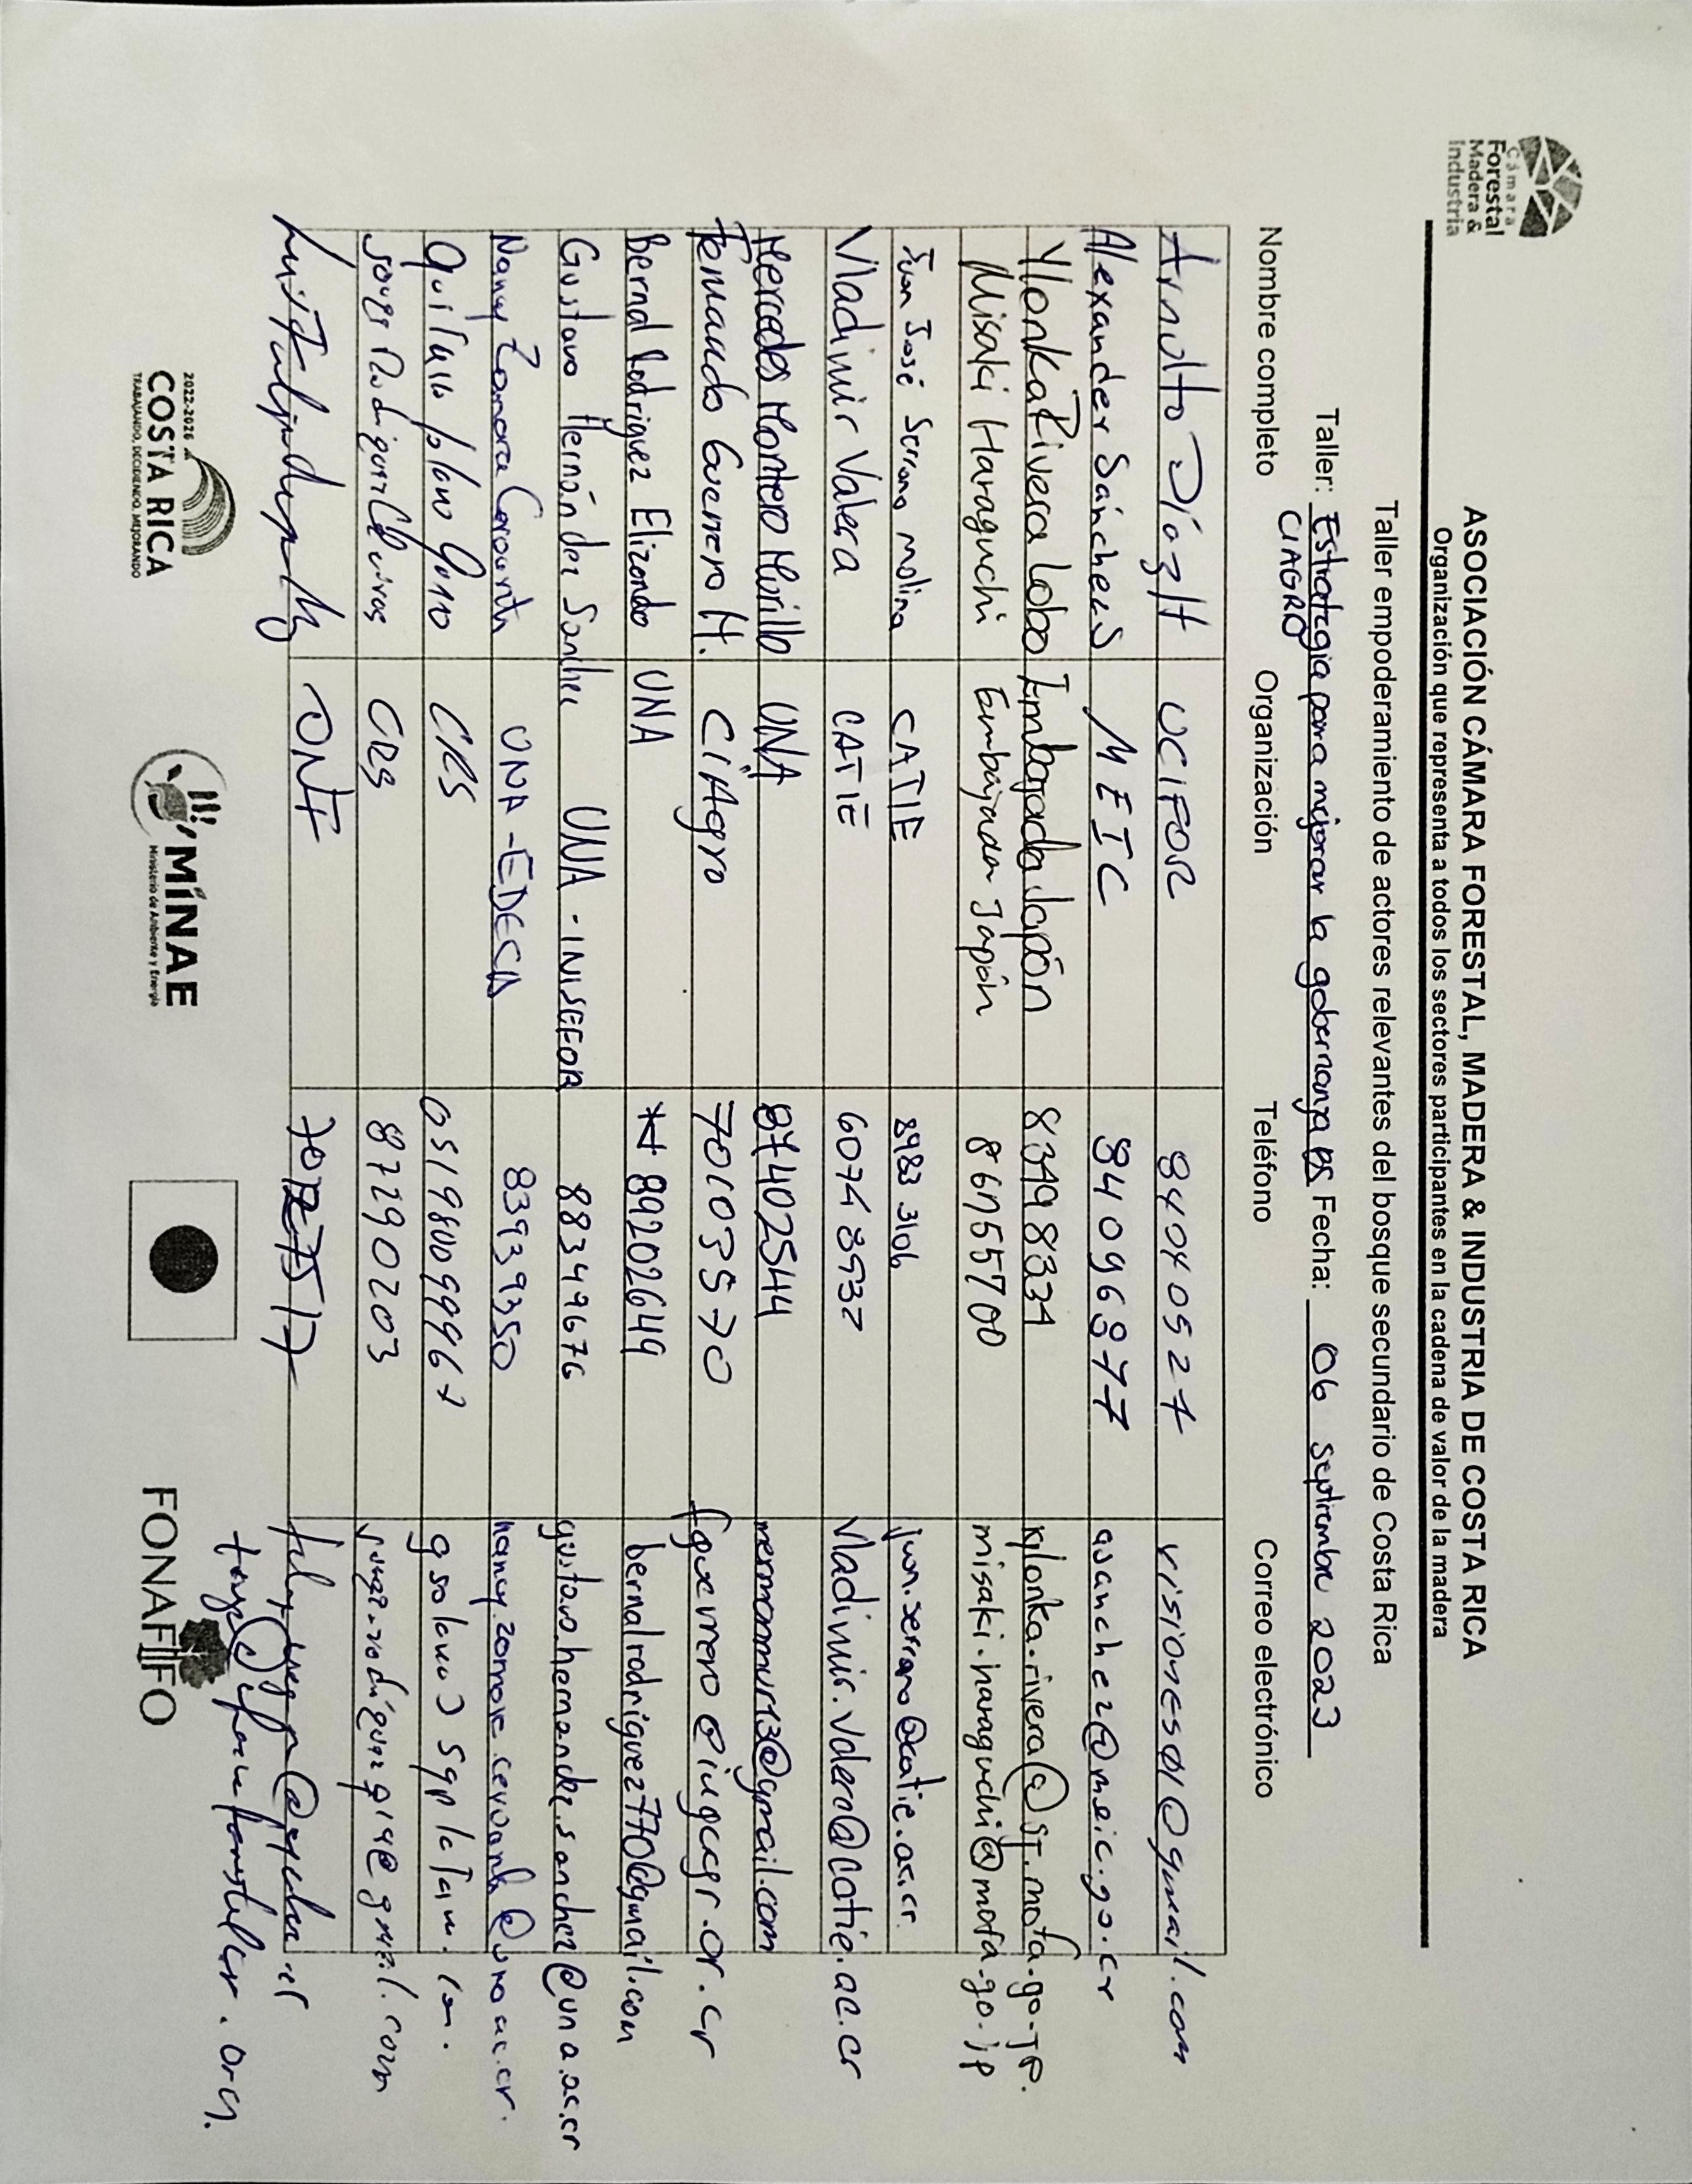 Cámara
Forestal
Madera &
Industria
ASOCIACIÓN CÁMARA FORESTAL, MADERA & INDUSTRIA DE COSTA RICA
Organización que representa a todos los sectores participantes en la cadena de valor de la madera
Taller empoderamiento de actores relevantes del bosque secundario de Costa Rica
Taller: Estrategia para mejorar la gobernanza BS Fecha: 06 septiembre 2023
CIAGRO
Nombre completo Organización Teléfono Correo electrónico
Arnulfo Díaz H UCIFOR 84040527 visiones01@gmail.com
Alexander Sánchez S MEIC 84096977 asanchez@meic.go.cr
Ylonka Rivera Lobo Embajada Japón 83498334 ylonka.rivera@sj.mofa.go.jp.
Misaki Haraguchi Embajada Japón 86755700 misaki.haraguchi@mofa.go.jp
Juan José Serrano Molina CATIE 8983 3106 juan.serrano@catie.ac.cr.
Vladimir Valera CATIE 60748932 vladimir.valera@catie.ac.cr
Mercedes Montero Murillo UNA 87402544 mermomur13@gmail.com
Fernando Guerrero H. CIAgro 70103570 fguerrero@ingagr.or.cr
Bernal Rodríguez Elizondo UNA 89202649 bernalrodriguez770@gmail.com
Gustavo Hernández Sánchez UNA - INISEFOR 88349676 gustavo.hernandez.sanchez@una.ac.cr
Nancy Zamora UNA - EDECA 83939350
Solano CRS
CRS 87290203
ONF
2022-2026
COSTA RICA
TRABAJANDO, DECIDIENDO, MEJORANDO
MINAE
Ministerio de Ambiente y Energía
FONAFIFO